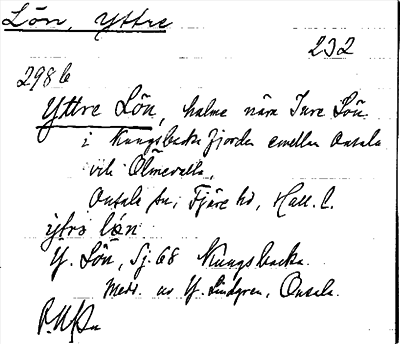 Lön, Yttre
232
298 b
Yttre Lön, holme nära Inre Lön
i Kungsbacka fjorden emellan Onsala
och Ölmevalla,
Onsala sn, Fjäre hd, Hall. l.
ytrə lön
Y. Lön, Sj. 68 Kungsbacka.
Medd. av Y. Lindgren, Onsala.